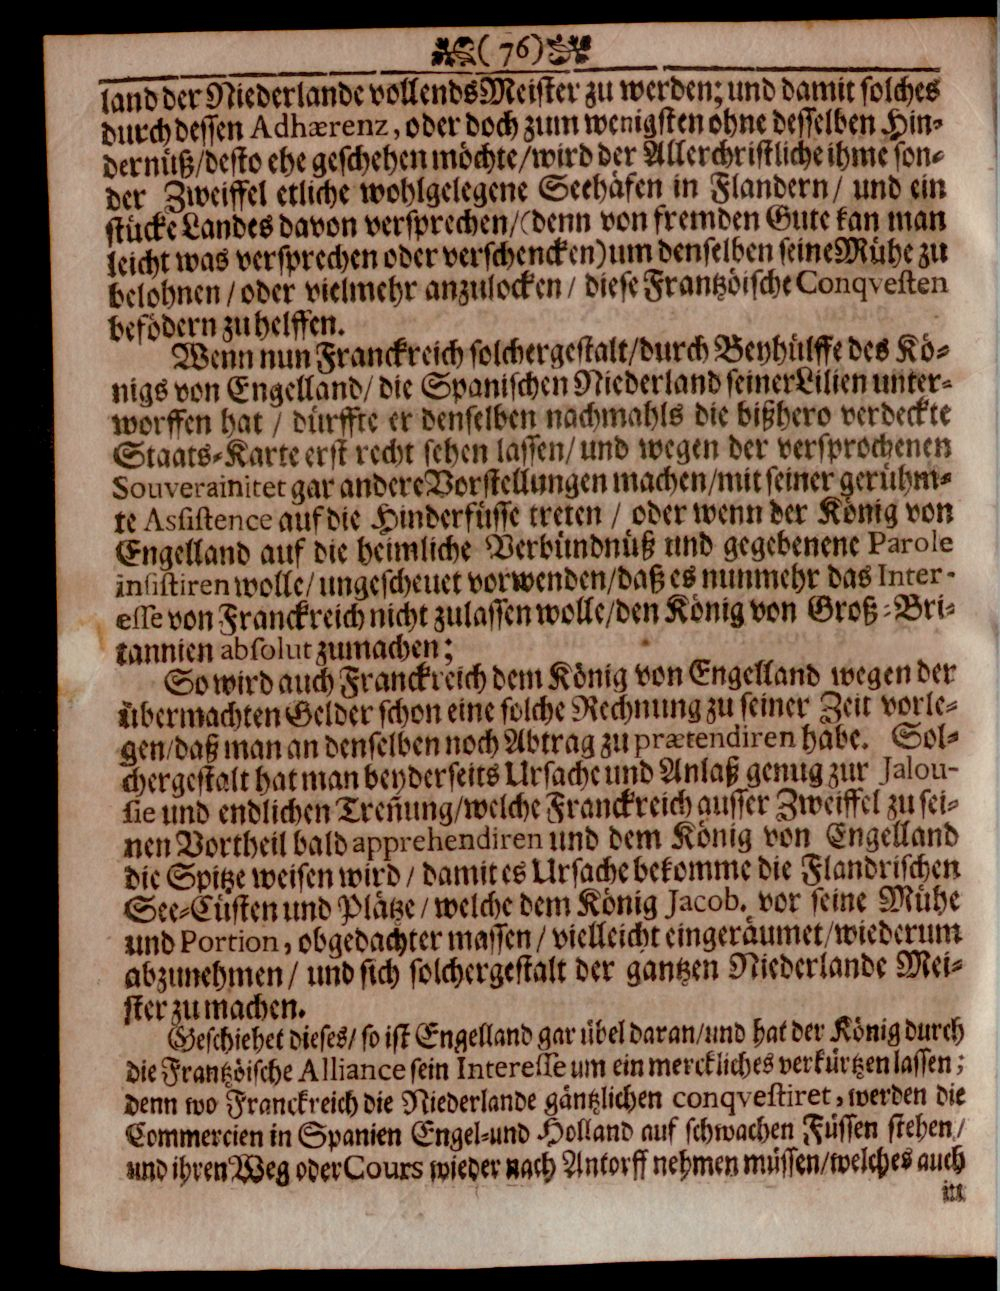 (76)
land der Niederlande vollends Meister zu werden; und damit solches
durch dessen Adhærenz, oder doch zum wenigsten ohne desselben Hin-
dernüß/desto ehe geschehen möchte/wird der Allerchristliche ihme son-
der Zweiffel etliche wohlgelegene Seehäfen in Flandern/ und ein
stücke Landes davon versprechen/(denn von fremden Gute kan man
leicht was versprechen oder verschencken) um denselben seine Mühe zu
belohnen/oder vielmehr anzulocken/ diese Frantzöische Conqvesten
befödern zu helffen.
Wenn nun Franckreich solchergestalt/durch Beyhülffe des Kö-
nigs von Engelland/ die Spanischen Niederland seiner Lilien unter-
worffen hat / dürffte er denselben nachmahls die bißhero verdeckte
Staats-Karte erst recht sehen lassen/ und wegen der versprochenen
Souverainitet gar andere Vorstellungen machen/mit seiner gerühm-
te Assistence auf die Hinderfüsse treten / oder wenn der König von
Engelland auf die heimliche Verbündnüß und gegebenene Parole
insistiren wolle/ungescheuet vorwenden/daß es nunmehr das Inter-
esse von Franckreich nicht zulassen wolle/den König von Groß-Bri-
tannien absolut zumachen;
So wird auch Franckreich dem König von Engelland wegen der
übermachten Gelder schon eine solche Rechnung zu seiner Zeit vorle-
gen/daß man an denselben noch Abtrag zu prætendiren habe. Sol-
chergestalt hat man beyderseits Ursache und Anlaß genug zur Jalou-
sie und endlichen Treñung/welche Franckreich ausser Zweiffel zu sei-
nen Vortheil bald apprehendiren und dem König von Engelland
die Spitze weisen wird/ damit es Ursache bekomme die Flandrischen
See-Cüsten und Plätze/welche dem König Jacob. vor seine Mühe
und Portion, obgedachter massen/ vielleicht eingeräumet/wiederum
abzunehmen/ und sich solchergestalt der gantzen Niederlande Mei-
ster zu machen.
Geschiehet dieses/ so ist Engelland gar übel daran/und hat der König durch
die Frantzöische Alliance sein Interesse um ein merckliches verkürtzen lassen;
denn wo Franckreich die Niederlande gäntzlichen conqvestiret, werden die
Commercien in Spanien Engel-und Holland auf schwachen Füssen stehen/
und ihren Weg oder Cours wieder nach Antorff nehmen müssen/welches auch
in